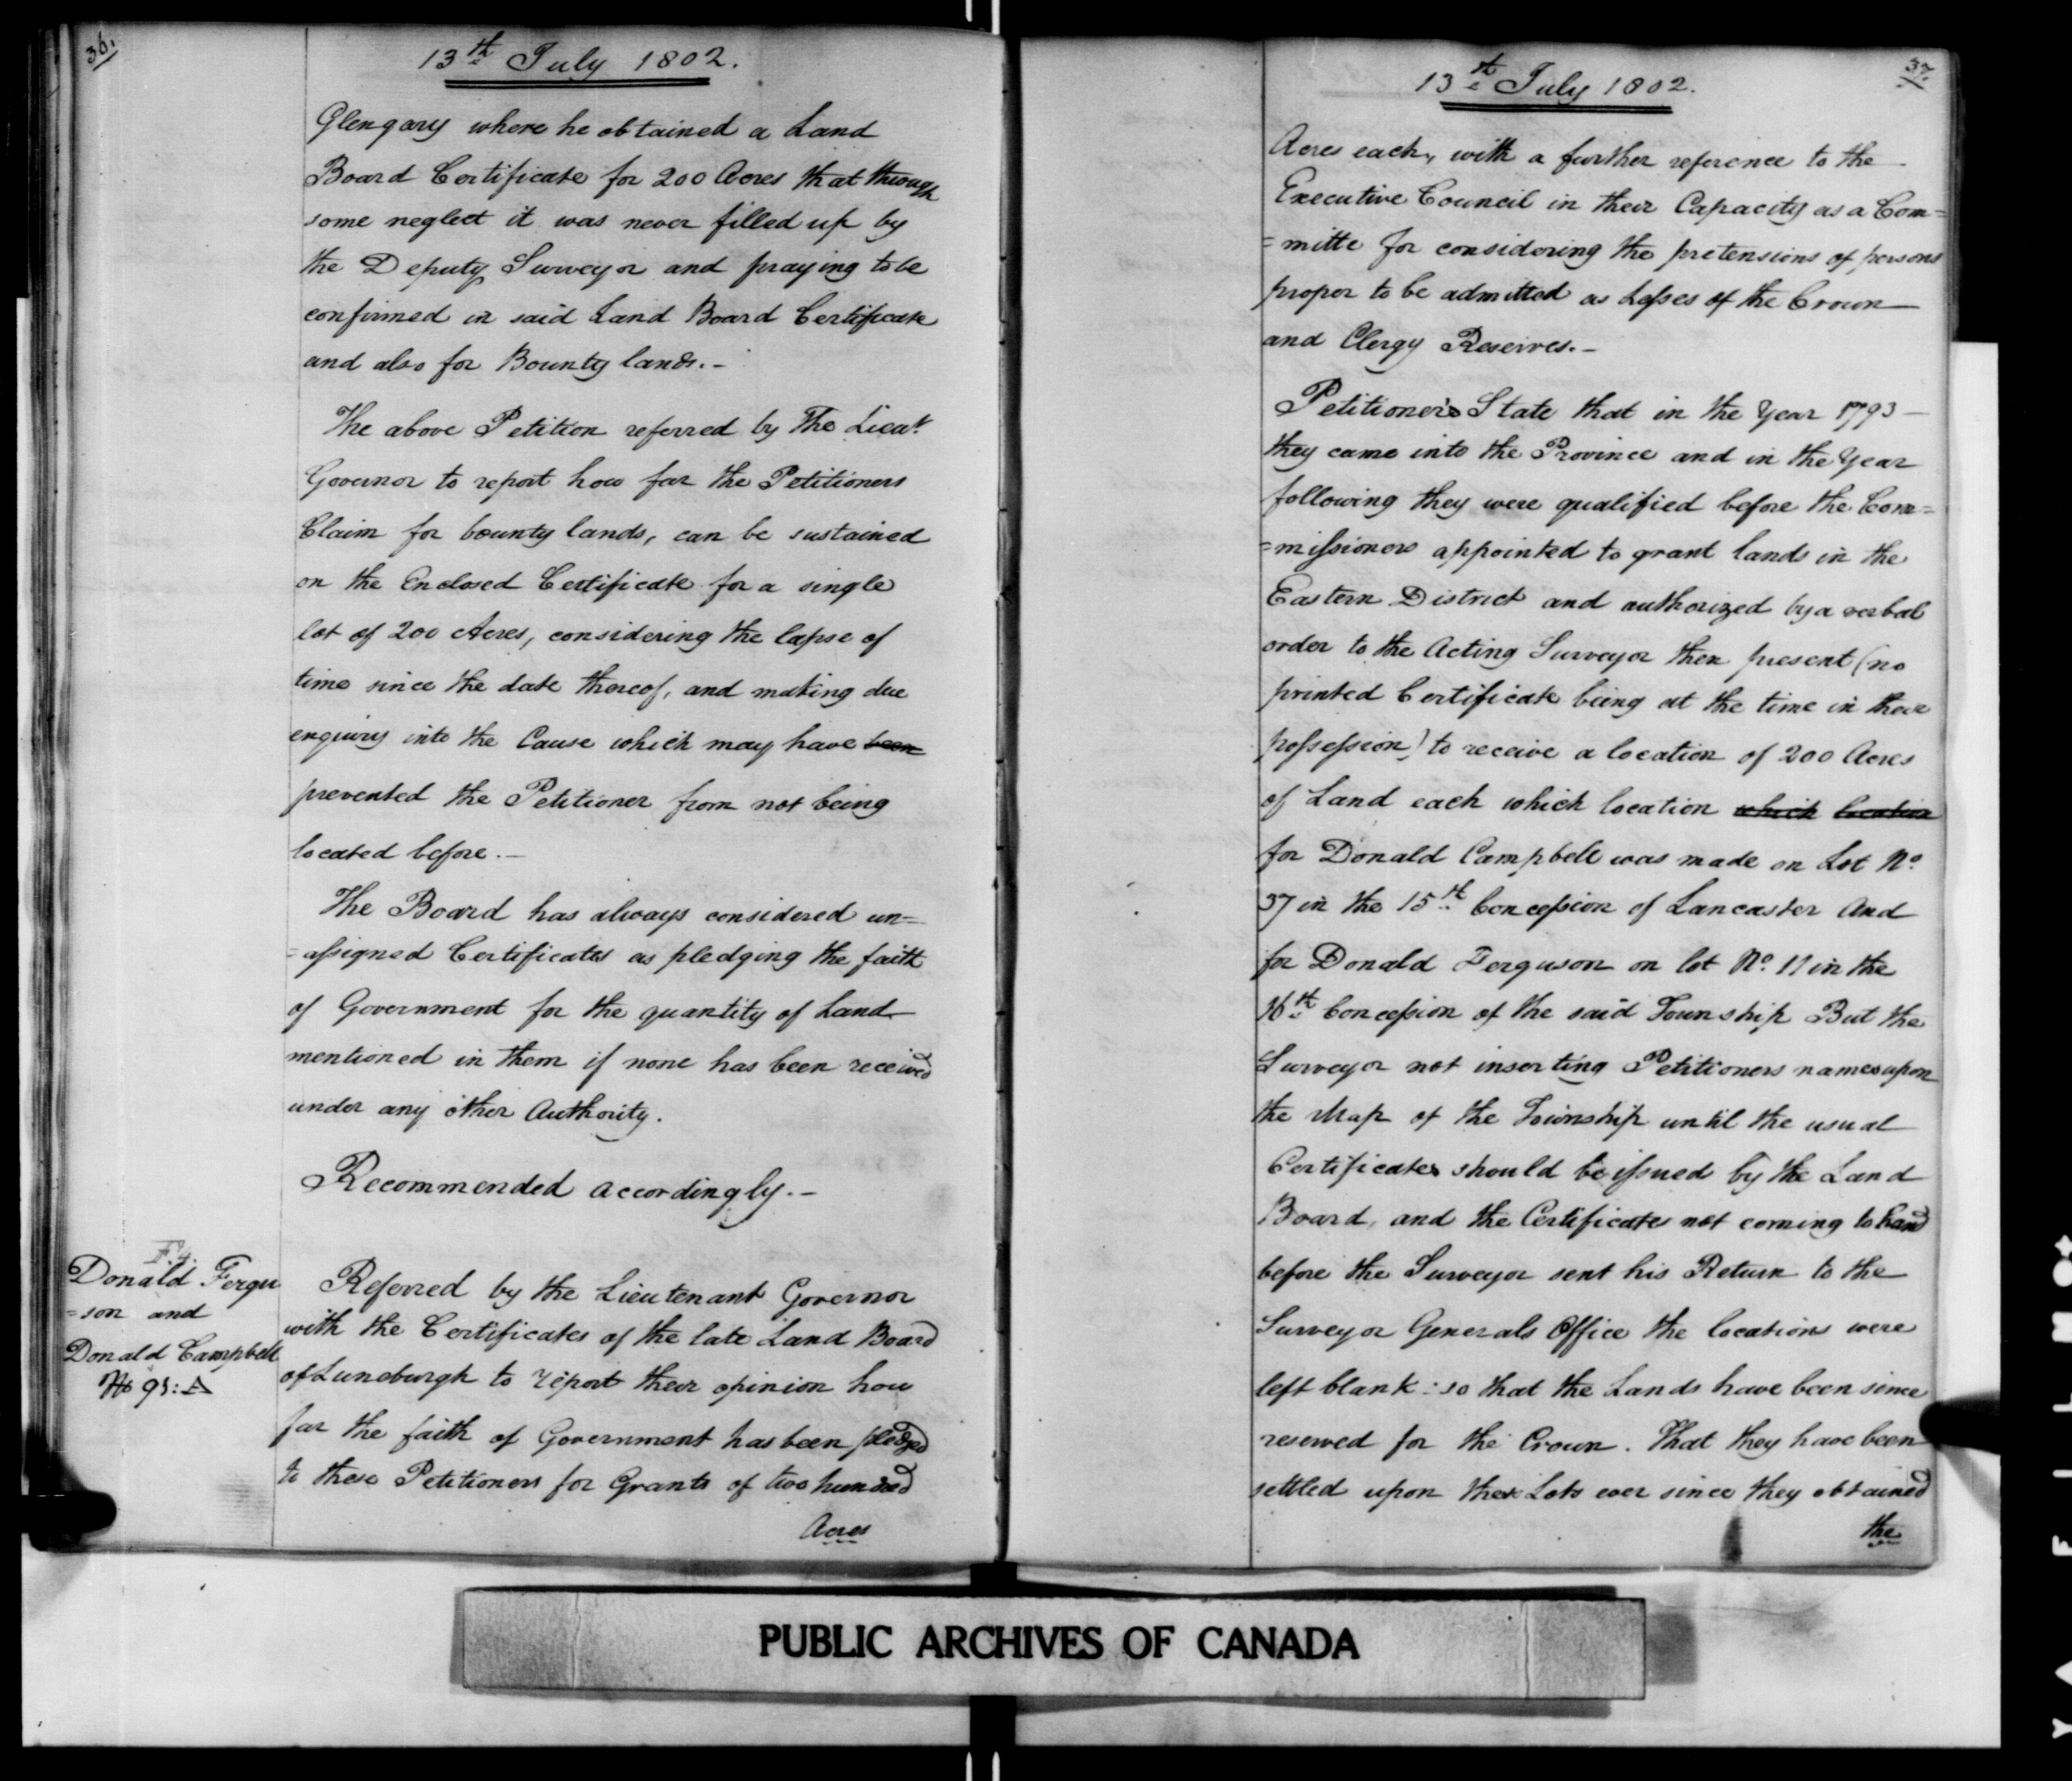 36.
13th July 1802.
Glengary where he obtained a Land
Board Certificate for 200 Acres that through
some neglect it was never filled up by
the Deputy Surveyor and praying to be
confirmed in said Land Board Certificate
and also for Bounty lands.-
The above Petition referred by The Lieut.
Governor to report how far the Petitioners
Claim for bounty lands, can be sustained
on the Enclosed Certificate for a single
lot of 200 Acres, considering the lapse of
time since the date thereof, and making due
enquiry into the Cause which may have been
prevented the Petitioner from not being
located before.-
The Board has always considered un=
=assigned Certificates as pledging the faith
of Government for the quantity of Land
mentioned in them if none has been received
under any other Authority.
Recommended accordingly.-
F.4.
Donald Fergu
=son and
Donald Campbell
Referred by the Lieutenant Governor
with the Certificates of the late Land Board
of Luneburgh to report their opinion how
far the faith of Government has been pledged
to these Petitioners for Grants of two hundred
Acres
37.
13th July 1802.
Acres each, with a further reference to the
Executive Council in their Capacity as a Com=
=mitte for considering the pretensions of persons
proper to be admitted as Lesses of the Crown
and Clergy Reserves.-
Petitioners State that in the Year 1793
they came into the Province and in the Year
following they were qualified before the Com=
=missioners appointed to grant lands in the
Eastern District and authorized by a verbal
order to the Acting Surveyor then present (no
printed Certificate being at the time in their
possession) to receive a location of 200 Acres
of Land each which location which location
for Donald Campbell was made on Lot No.
37 in the 15th Concession of Lancaster And
for Donald Ferguson on lot No. 11 in the
16th Concession of the said Township But the
Surveyor not inserting Petitioners names upon
the Map of the Township until the usual
Certificates should be issued by the Land
Board, and the Certificates not coming to hand
before the Surveyor sent his Return to the
Surveyor Generals Office the locations were
left blank: so that the Lands have been since
reserved for the Crown. That they have been
settled upon their Lots ever since they obtained
the
PUBLIC ARCHIVES OF CANADA